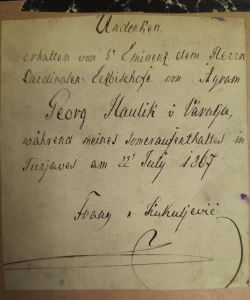 Andenken
erhalten von Sr Eminenz dem Herrn
Cardinalen-Erzbischofe von Agram
Georg Haulik v Váralja,
während meines Someraufenthaltes in
am 22t July 1867
Ivan v Kukuljević